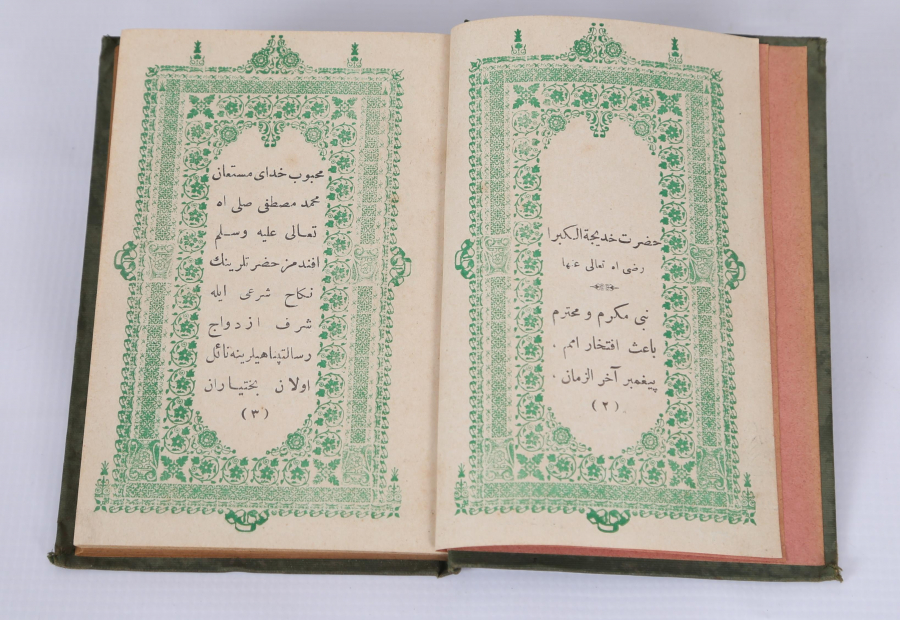 حضرت خديجة الكبرا
رضى اه تعالى عنها
نبى مكرم و محترم
باعث افتخار امم ٠
پيغمبر آخر الزمان ٠
(٢)
محبوب خداى مستعانى
محمد مصطفى صلى اه
تعالى عليه وسلم
افندمز حضرتلرينك
نكاح شرعى ايله
شرف ازدواج
رسالتپناهيلرينه نائل
اولان بختياران
(٣)